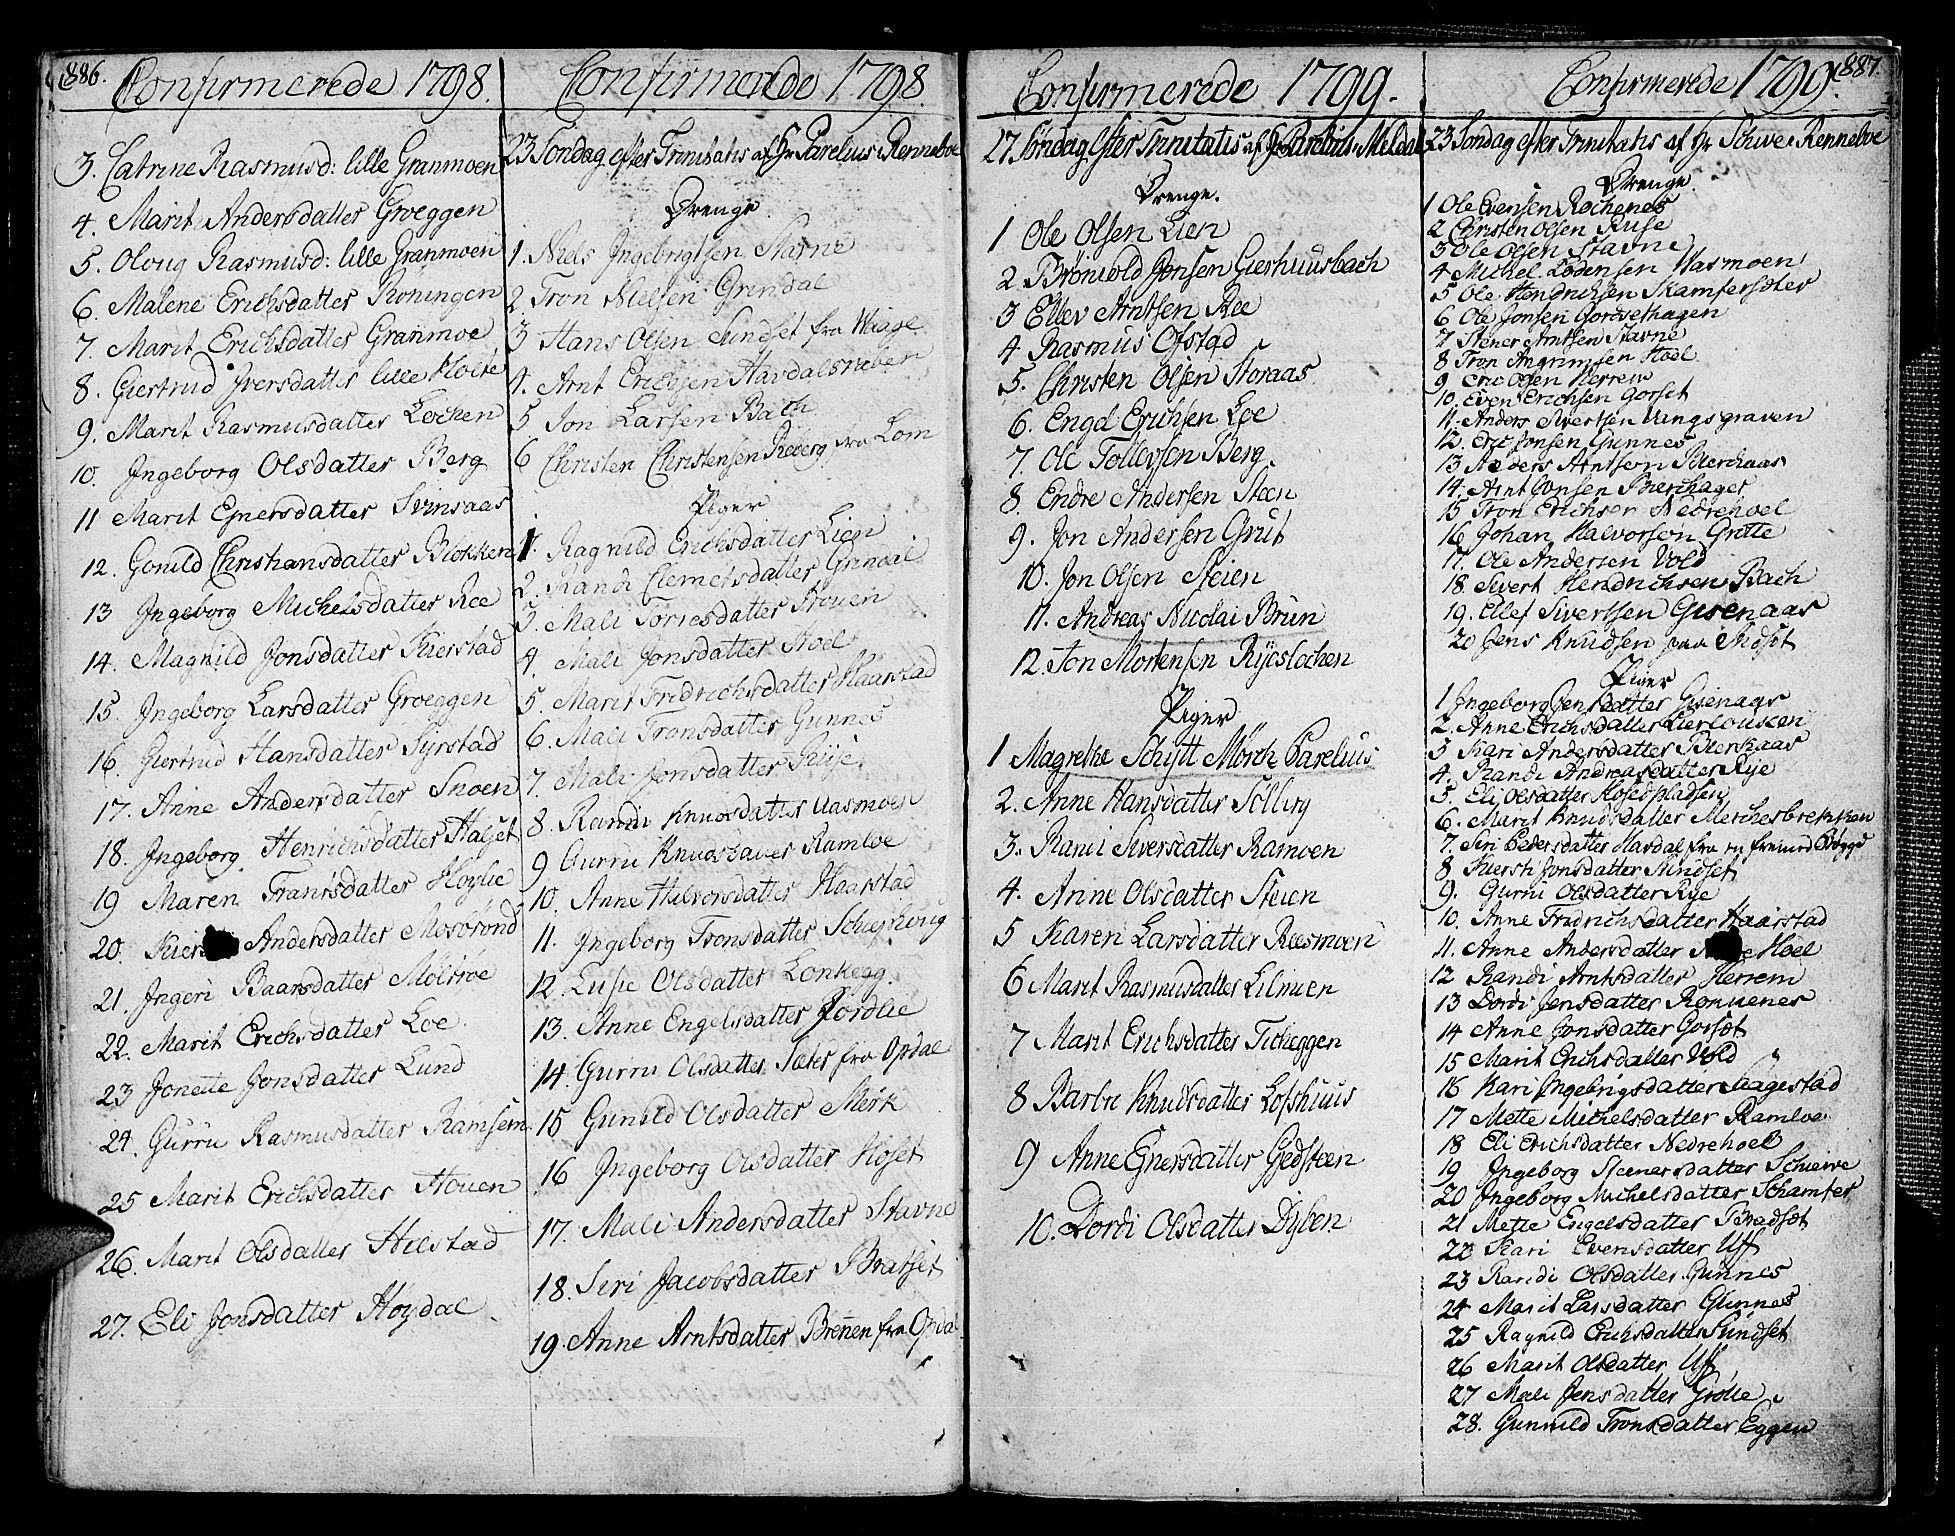 886.
Confirmerede 1798.
3. Catrine Rasmusd: lille Granmoen
4. Marit Andersdatter Groeggen
5. Oloug Rasmusd: lille Granmoen
6. Malene Erichsdatter Koningen
7. Marit Erichsdatter Granmoe
8. Giertrud Iversdatter lille Holte
9. Marit Rasmusdatter Lochen
10. Ingeborg Olsdatter Berg
11 Marit Ejnersdatter Svinsaas
12. Gonild Christiansdatter Blokken
13 Ingeborg Michelsdatter Ree
14. Magnild Jonsdatter Kierstad
15. Ingeborg Larsdatter Groeggen
16. Giertrud Hansdatter Syrstad
17. Anne Andersdatter Snoen
18. Ingeborg Henrichsdatter Halset
19 Maren Fransdatter Hoylie
20. Andersdatter Mosbrond
21. Ingeri Baarsdatter
22. Marit Erichsdatter Loe
23 Jonette Jonsdatter Lund
24. Gurru Rasmusdatter Ramsem
25 Marit Erichsdatter Houen
26. Marit Olsdatter Hilstad
27. Eli Jonsdatter Hoydal
Confirmerede 1798.
23 Söndag efter Trinitatis af Hr Parelius i Renneboe
Drenge.
1. Niels Ingebrigtsen Stavne
2. Tron Nielsen Grindal
3 Hans Olsen Sundset fra
4. Arnt Erichsen Havdalsvolen
5 Jon Larsen Bach
6 Christen Christensen Roberg fra Lom
Piger
1. Ragnild Erichsdatter Lien
2. Randi Clemetsdatter Grindal
3. Mali Torresdatter
4. Mali Jonsdatter Hoel
5. Marit Fridrichsdatter Haarstad
6. Mali Tronsdatter Gunnes
7. Mali Jonsdatter
8. Randi Knudsdatter Uasmoen
9 Gurru Knudsdatter Ramloe
10. Anne Halvorsdatter Haarstad
11. Ingeborg Tronsdatter
12. Lusie Olsdatter Lonkegg.
13. Anne Engelsdatter Jordlie
14. Gurru Olsdatter Sæter fra Opdal
15 Gunild Olsdatter Mærk
16 Ingeborg Olsdatter Hoset
17. Mali Andersdatter Stavne
18. Siri Jacobsdatter Bratset
19. Anne Arntsdatter Brenen fra Opdal
Confirmerede 1799.
17 Söndag efter Trinitatis af Hr Parelius i Meldal
Drenge.
1 Ole Olsen Lien
2. Brönild Jonsen Gierhuusbach
3 Ellev Arntsen Ree
4 Rasmus Ofstad
5. Christen Olsen Storaas
6. Engel Erichsen Loe
7. Ole Tollevsen Berg
8. Endre Andersen Steen
9. Jon Andersen Grut
10. Jon Olsen Steien
11. Andreas Nicolai Brun
12. Jon Mortensen
Piger
1 Magrethe Schytt Mörch Parelius
2. Anne Hansdatter Solberg
3. Randi Siversdatter Ramoen
4. Anne Olsdatter Steien
5 Karen Larsdatter Reesmoen
6 Marit Rasmusdatter Lilmoen
7 Marit Erichsdatter Ticheggen
8 Barbre Knudsdatter Lofshuus
9 Anne Ejnersdatter Gjedsteen
10. Dordi Olsdatter Dyben
887.
Confirmerede 1799.
23 Söndag efter Trinitatis af Hr Schive i Renneboe
Drenge.
1 Ole Evensen Rochenes
2 Christen Olsen Ruse
3 Ole Olsen Stavne
4 Michel Lodensen Uasmoen
5 Ole Hendrichsen Skamfersæter
6 Ole Jonsen Gorsethagen
7 Stener Arntsen Stavne
8 Tron Angrimsen Hoel
9 Eric Olsen Herrem
10. Even Erichsen Gorset
11. Anders Sivertsen Vingsgraven
12. Eric Jonsen Gunnes
13 Anders Arntsen Bierchaas
14. Arnt Jonsen Bierchager
15 Tron Erichsen Nedrehoel
16 Johan Halvorsen Gritte
17. Ole Andersen Vold
18. Sivert Hendrichsen Bach
19. Ellef Sivertsen Gisenaas
20 Jens Knudsen paa Indset
Piger
1 Ingeborg Jensdatter Gisenaas
2. Anne Erichsdatter
3 Kari Andersdatter Bierkaas
4. Randi Andreasdatter Rye
5. Eli Olsdatter Hosedpladsen
6. Marit Knudsdatter Merchesbrekken
7. Siri Pedersdatter Havdal fra en fremmed Bögd
8 Kiersti Jonsdatter Sundset
9. Gurru Olsdatter Rye
10. Anne Fridrichsdatter Haarstad
11. Anne Andersdatter Hoel
12 Randi Arntsdatter Herrem
13 Dordi Jensdatter
14 Anne Jonsdatter Gorset
15 Marit Erichsdatter Vold
16 Kari Ingebrigsdatter Saugestad
17 Mette Michelsdatter Ramloe
18 Eli Erichsdatter Nedrehoel
19 Ingeborg Steenersdatter Schieive
20 Ingeborg Michelsdatter Schamfer
21 Mette Engelsdatter Bradset
22 Kari Evensdatter Uff
23 Randi Olsdatter Gunnes
24 Marit Larsdatter Gunnes
25 Ragnild Erichsdatter Sundset
26 Marit Olsdatter Uff
27 Mali Jensdatter Grötte
28. Gunnild Tronsdatter Eggen